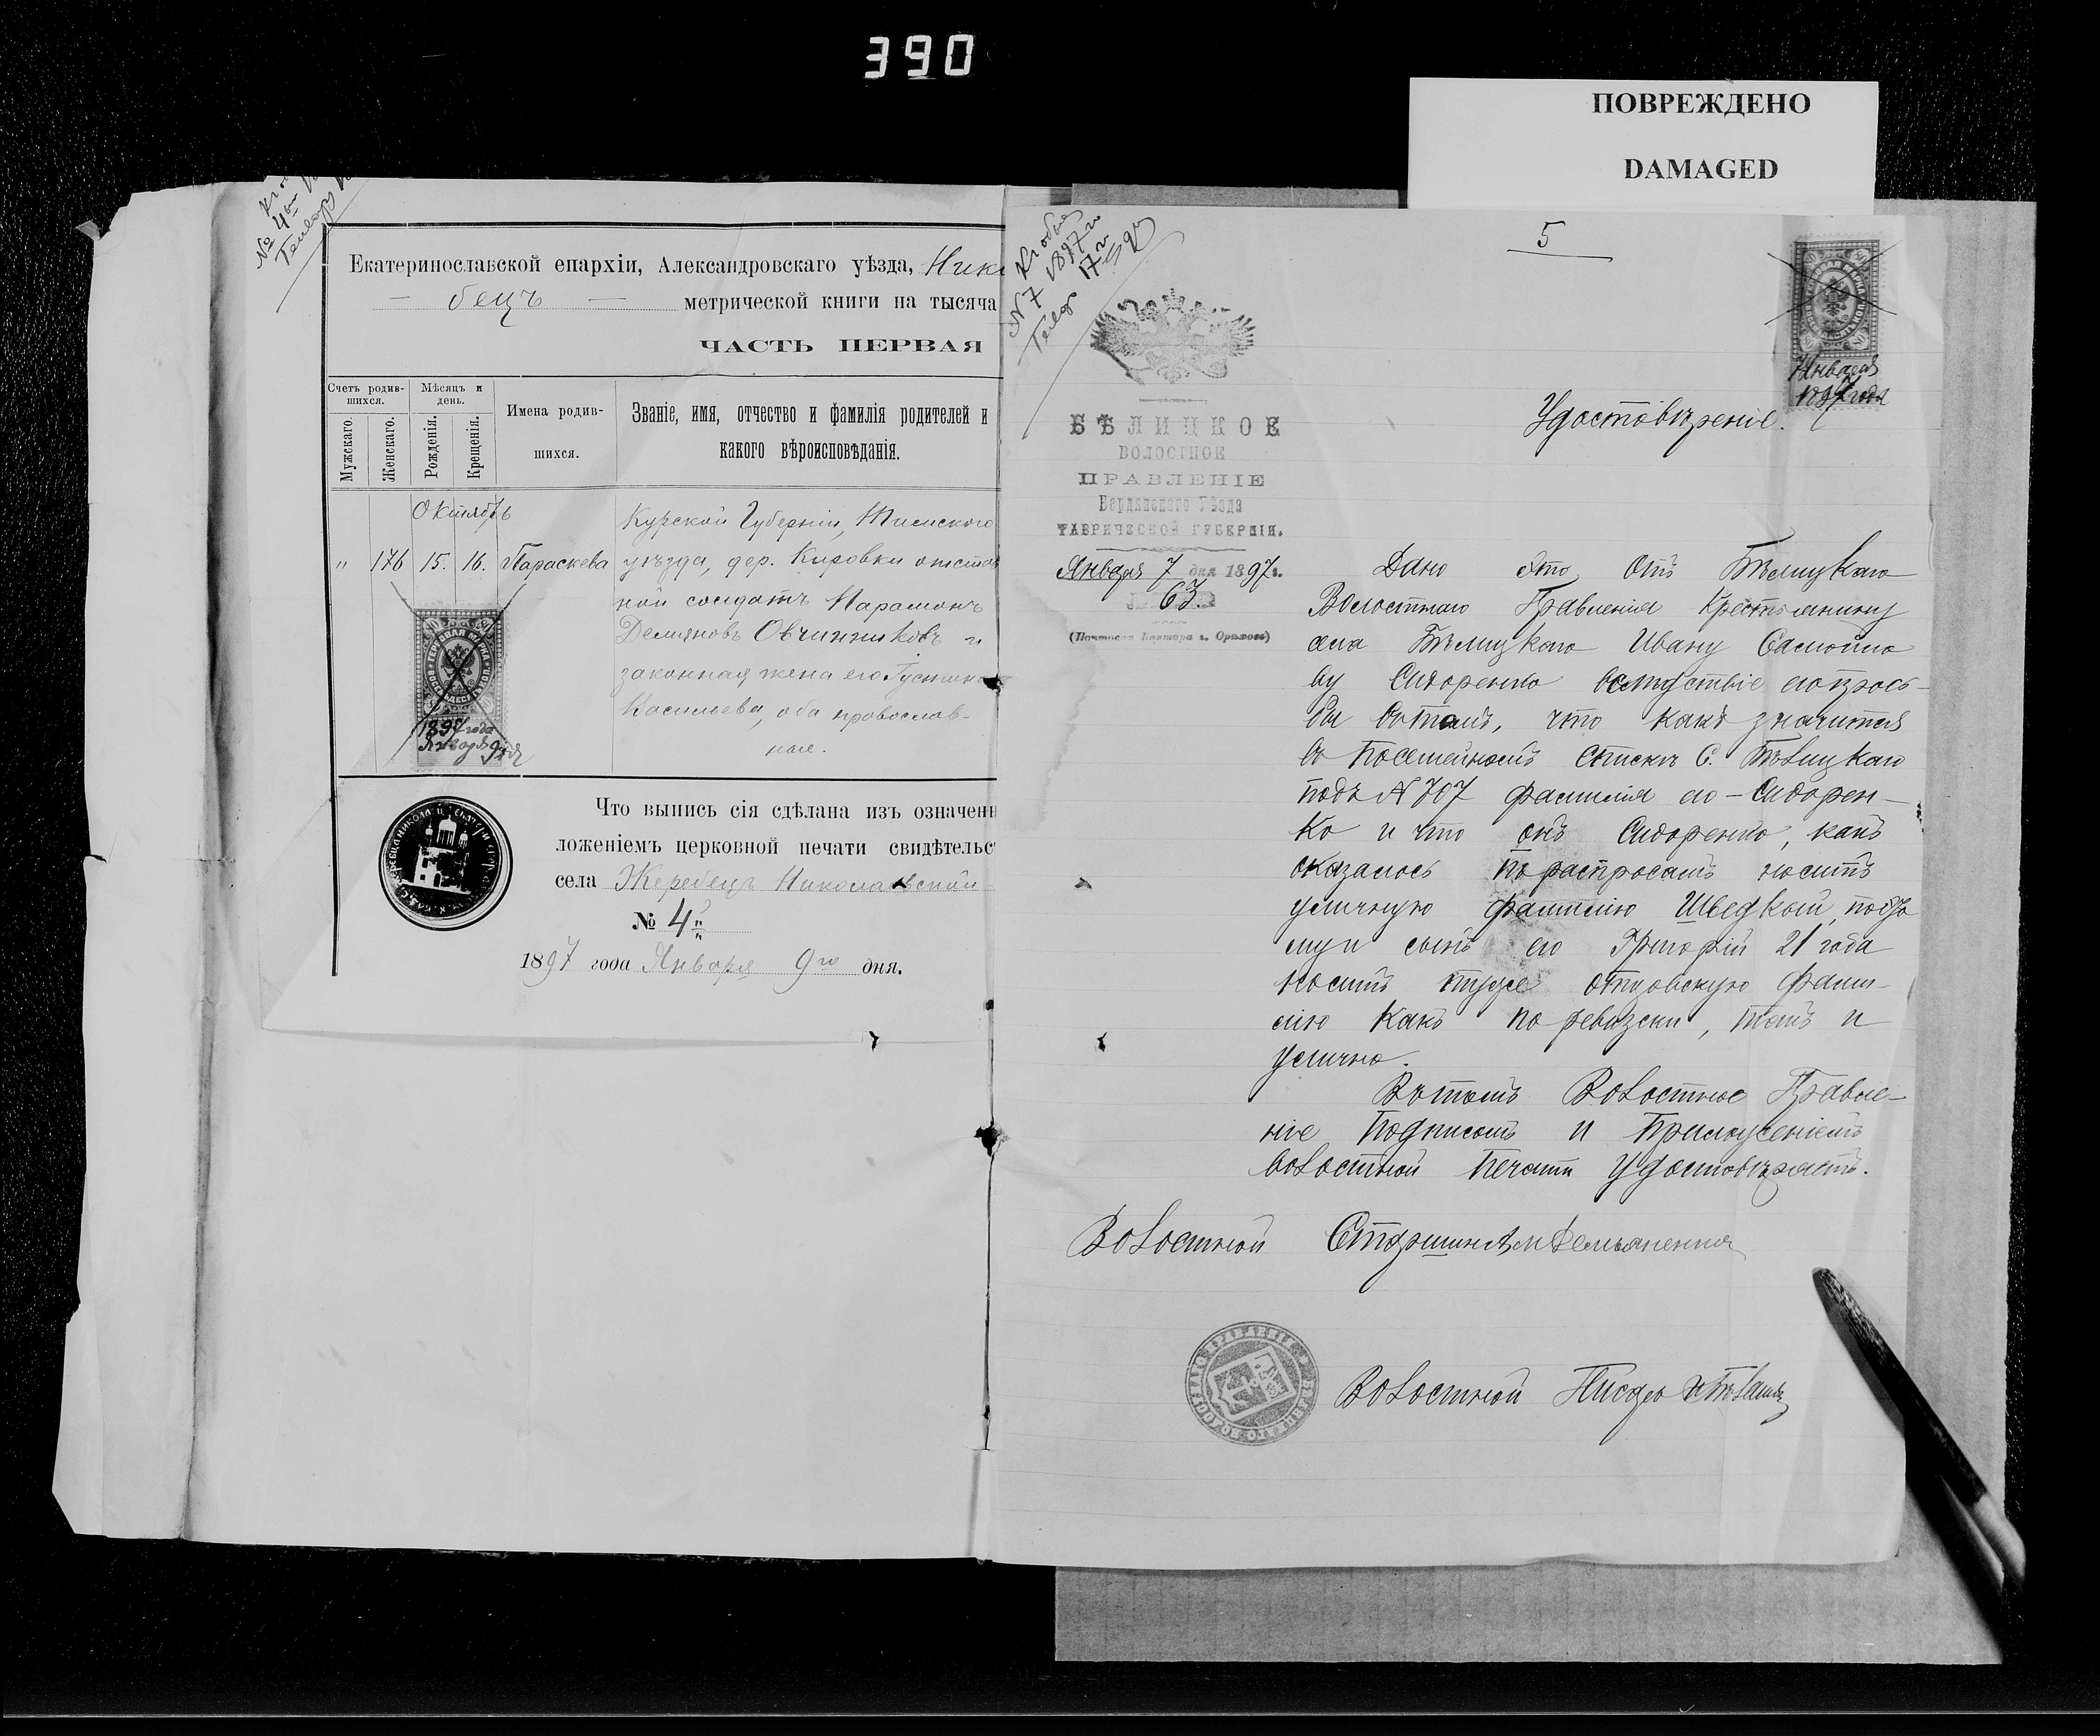 390
ПОВРЕЖДЕНО
DAMAGED
№ 4
Екатеринославской епархіи, Александровскаго уѣзда, Нико
— бецъ — метрической книги на тысяча
ЧАСТЬ ПЕРВАЯ
Счетъ родив-
шихся.
Мѣсяцъ и
день.
Мужскаго.
Женскаго.
Рожденія.
Крещенія.
Имена родив-
шихся.
Званіе, имя, отчество и фамилія родителей и
какого вѣроисповѣданія.
Октябрь
" 176 15. 16. Параскева
Курской Губерніи, Тимского
уѣзда, дер. Кировки отстав
ной солдатъ Парамонъ
Демьяновъ Овчинниковъ и
законная жена его Іустина
Васильева, оба православ-
ные.
1897 года
Января 9 дня
Что выпись сія сдѣлана изъ означенн
ложеніемъ церковной печати свидѣтельс
села Жеребецъ Николаевской
№ 4
1897 года Января 9го дня.
5
N 7 1897
Января
1897 года
БѢЛИЦКОЕ
ВОЛОСТНОЕ
ПРАВЛЕНІЕ
Бердянскаго Уѣзда
ТАВРИЧЕСКОЙ ГУБЕРНІИ.
Января 7 дня 1897 г.
№ 63.
(Почтовая Контора г. Орѣховъ)
Удостовѣреніе.
Дано это отъ Бѣлицкаго
Волостнаго Правленія крестьянину
села Бѣлицкаго Ивану Самойло
ву Сидоренко вслѣдствіе его прось-
бы вътомъ, что какъ значится
въ посемейномъ спискѣ с. Бѣлицкаго
подъ N 707 фамилія его — Сидорен-
ко и что онъ Сидоренко, какъ
оказалось по распросамъ носитъ
уличную фамилію Шведкой, поэто
му и сынъ его Григорій 21 года
носитъ туже отцовскую фами-
лію какъ по ревизски, такъ и
улично.
Вътомъ Волостное Правле-
ніе подписомъ и приложеніемъ
волостной печати удостовѣряетъ.
Волостной Старшина Демьяненко
Волостной Писарь